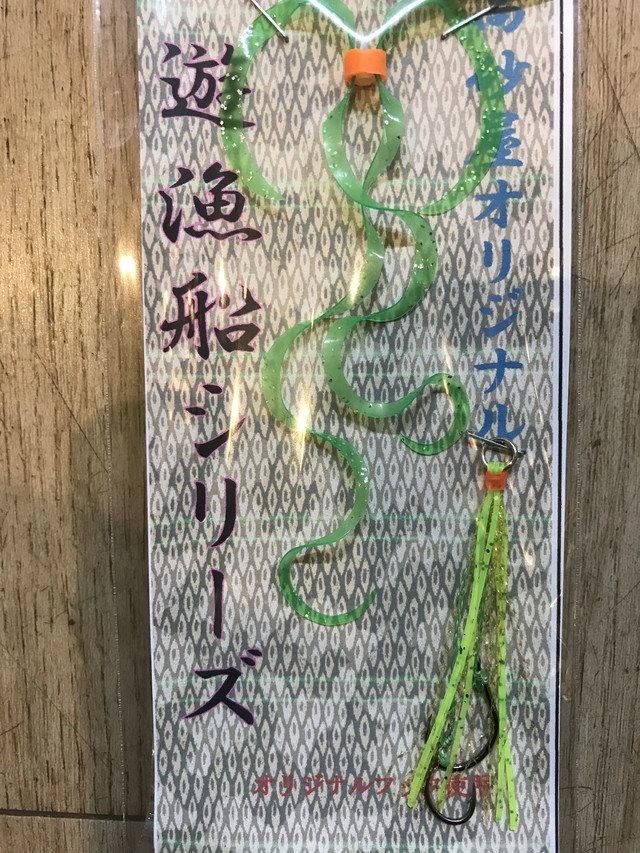 高砂屋オリジナル
遊漁船シリーズ
オリジナルフック使用